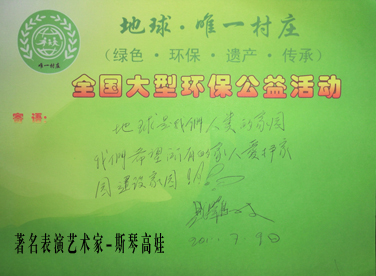 地球·唯一村庄
(绿色·环保·遗产·传承)
唯一村庄
全国大型环保公益活动
寄语:
地球是我們人类的家园
我們希望所有的家人爱护家
园建设家园
7.9日
著名表演艺术家-斯琴高娃